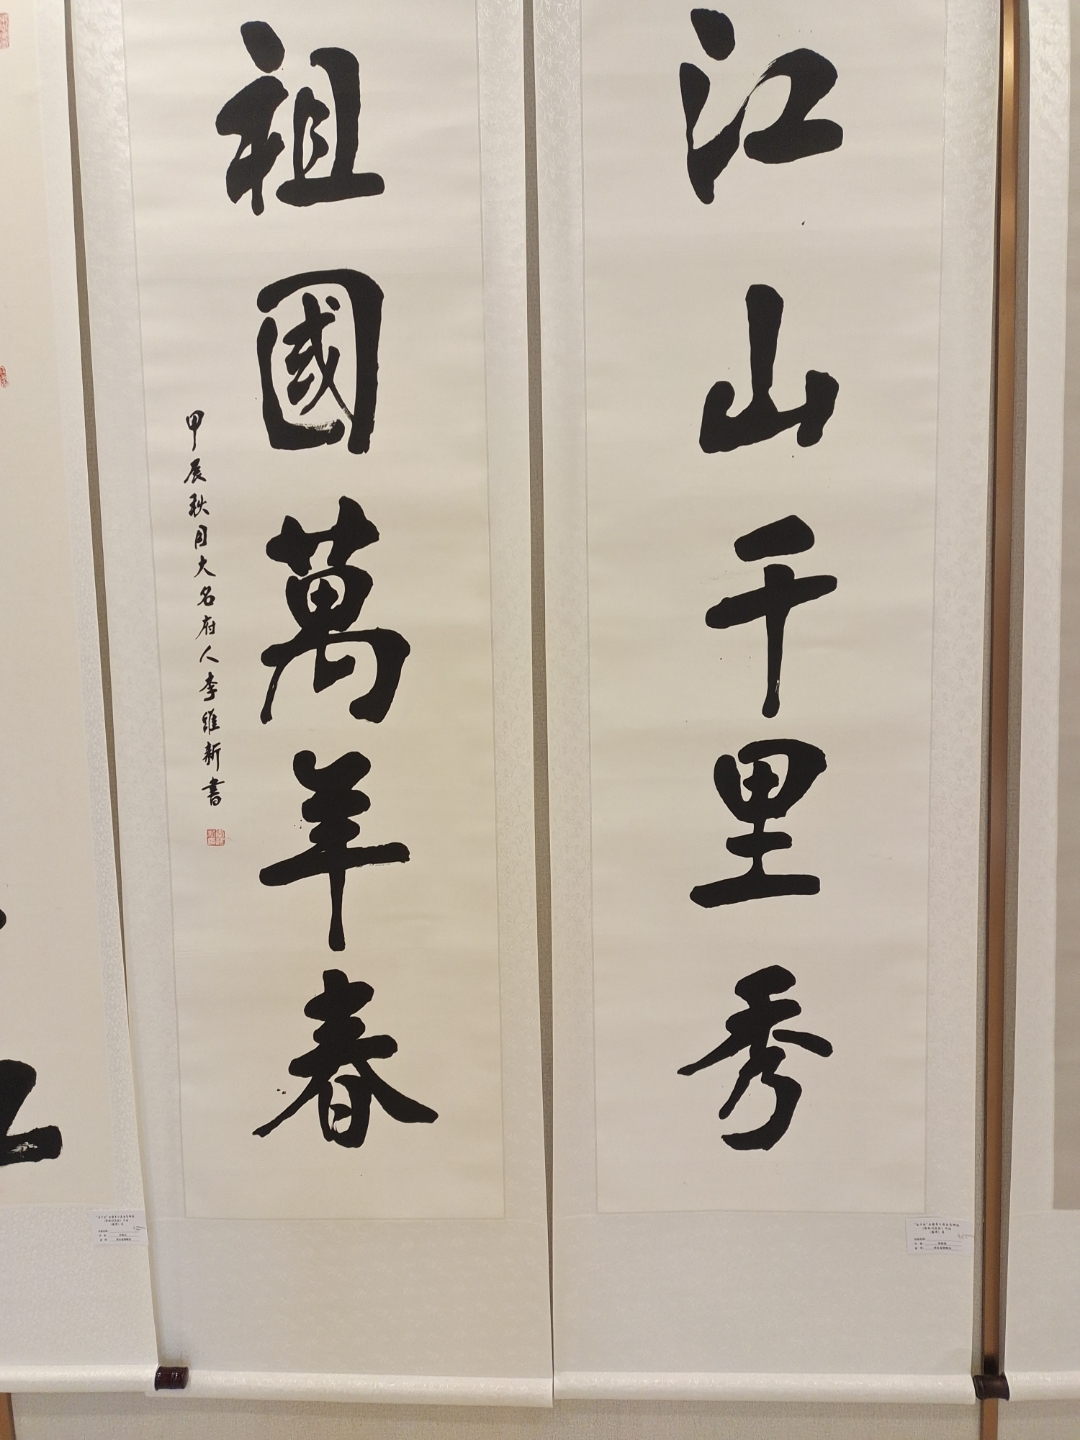 江山千里秀
祖國萬年春
甲辰秋月大名府人李維新書